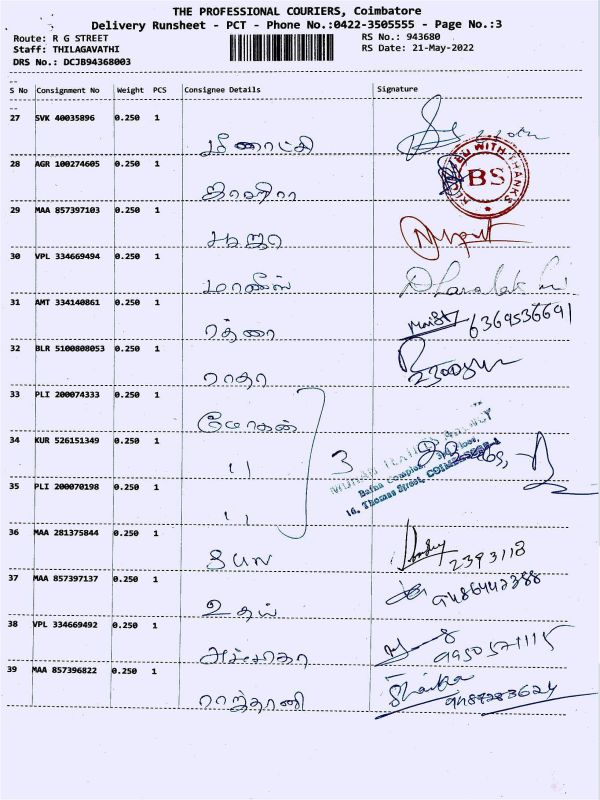 THE PROFESSIONAL COURIERS, Coimbatore
Delivery Runsheet - PCT - Phone No.:0422-3505555 - Page No.:3
Route: R G STREET
RS No.: 943680
Staff: THILAGAVATHI
RS Date: 21-May-2022
DRS No.: DCJB94368003
S No Consignment No Weight PCS Consignee Details Signature
27 SVK 40035896 0.250 1
மீனாட்சி
28 AGR 100274605 0.250 1
RECEIVED WITH THANKS
BS
29 MAA 857397103 0.250 1
30 VPL 334669494 0.250 1
31 AMT 334140861 0.250 1
6369536691
ரத்னா
32 BLR 5100808053 0.250 1
ராதா
33 PLI 200074333 0.250 1
மோகன்
34 KUR 526151349 0.250 1
" 3
Bafna Complex
16, Thomas Street,
35 PLI 200070198 0.250 1
"
36 MAA 281375844 0.250 1
2393118
37 MAA 857397137 0.250 1
9486442388
உதய்
38 VPL 334669492 0.250 1
9950571115
39 MAA 857396822 0.250 1
9487283624
ராஜ்தானி